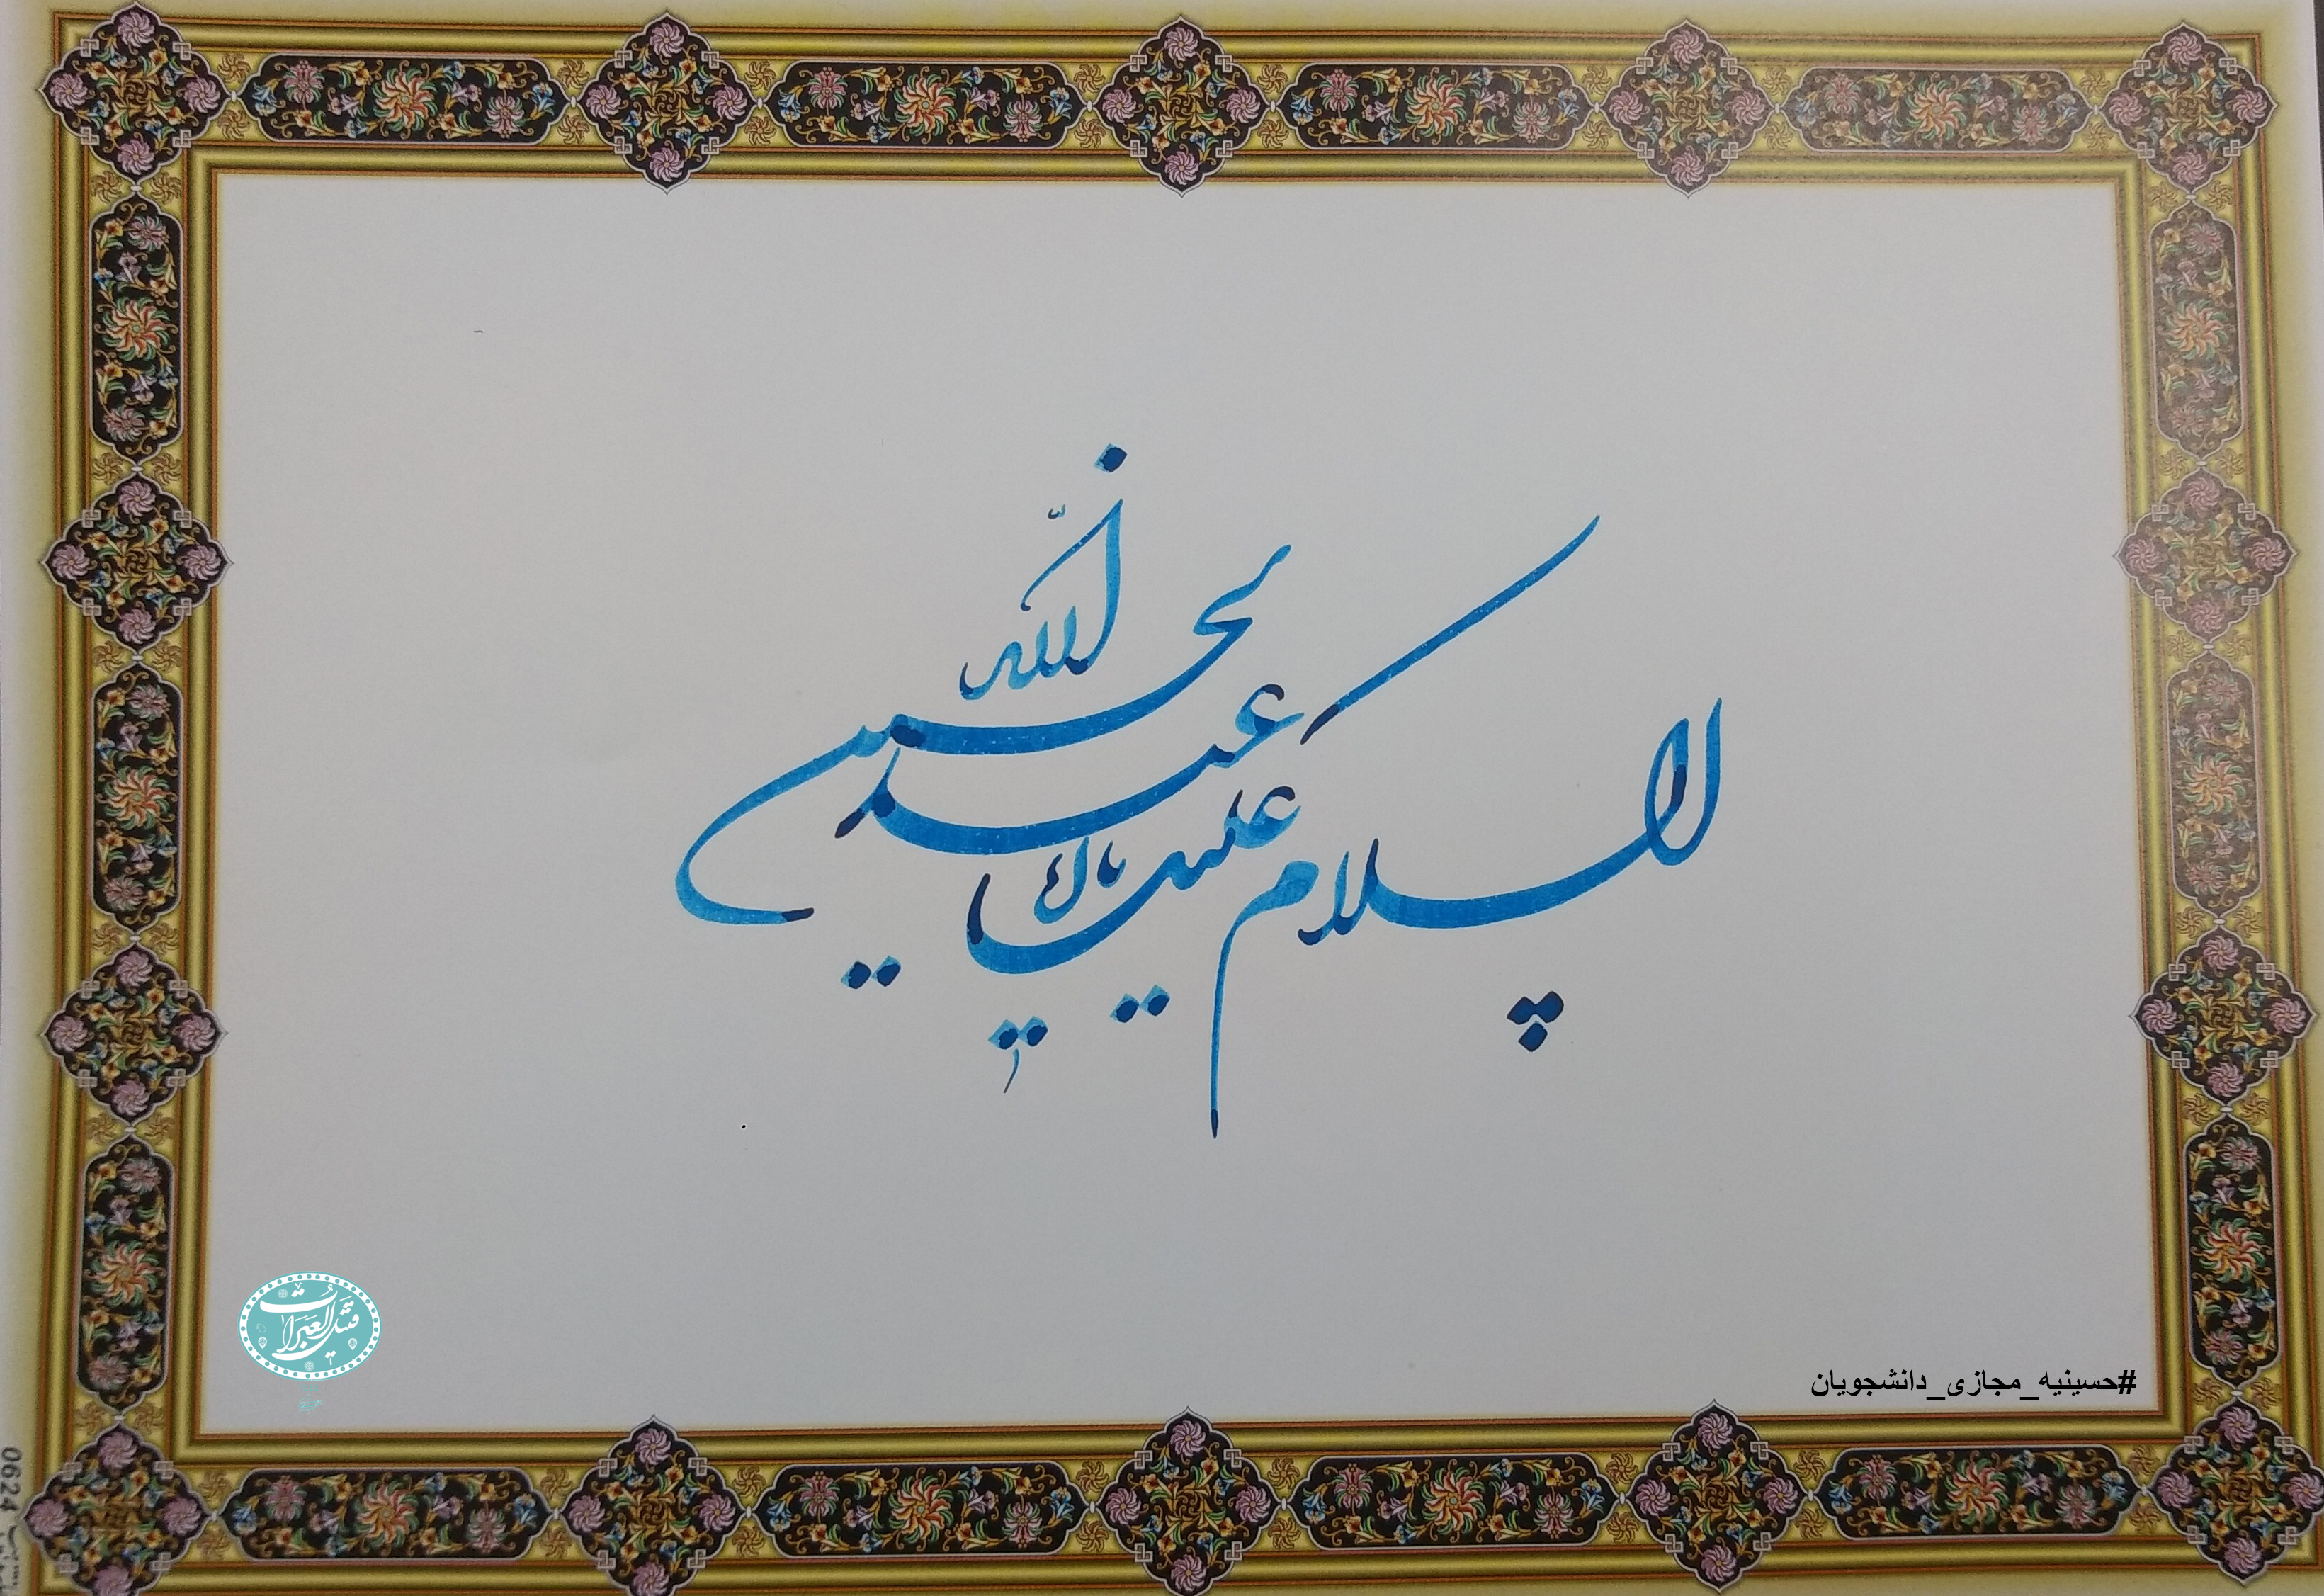 السلام علیک یا ابا عبدالله الحسین
قتیل العبرات
#حسینیه_مجازی_دانشجویان
0624